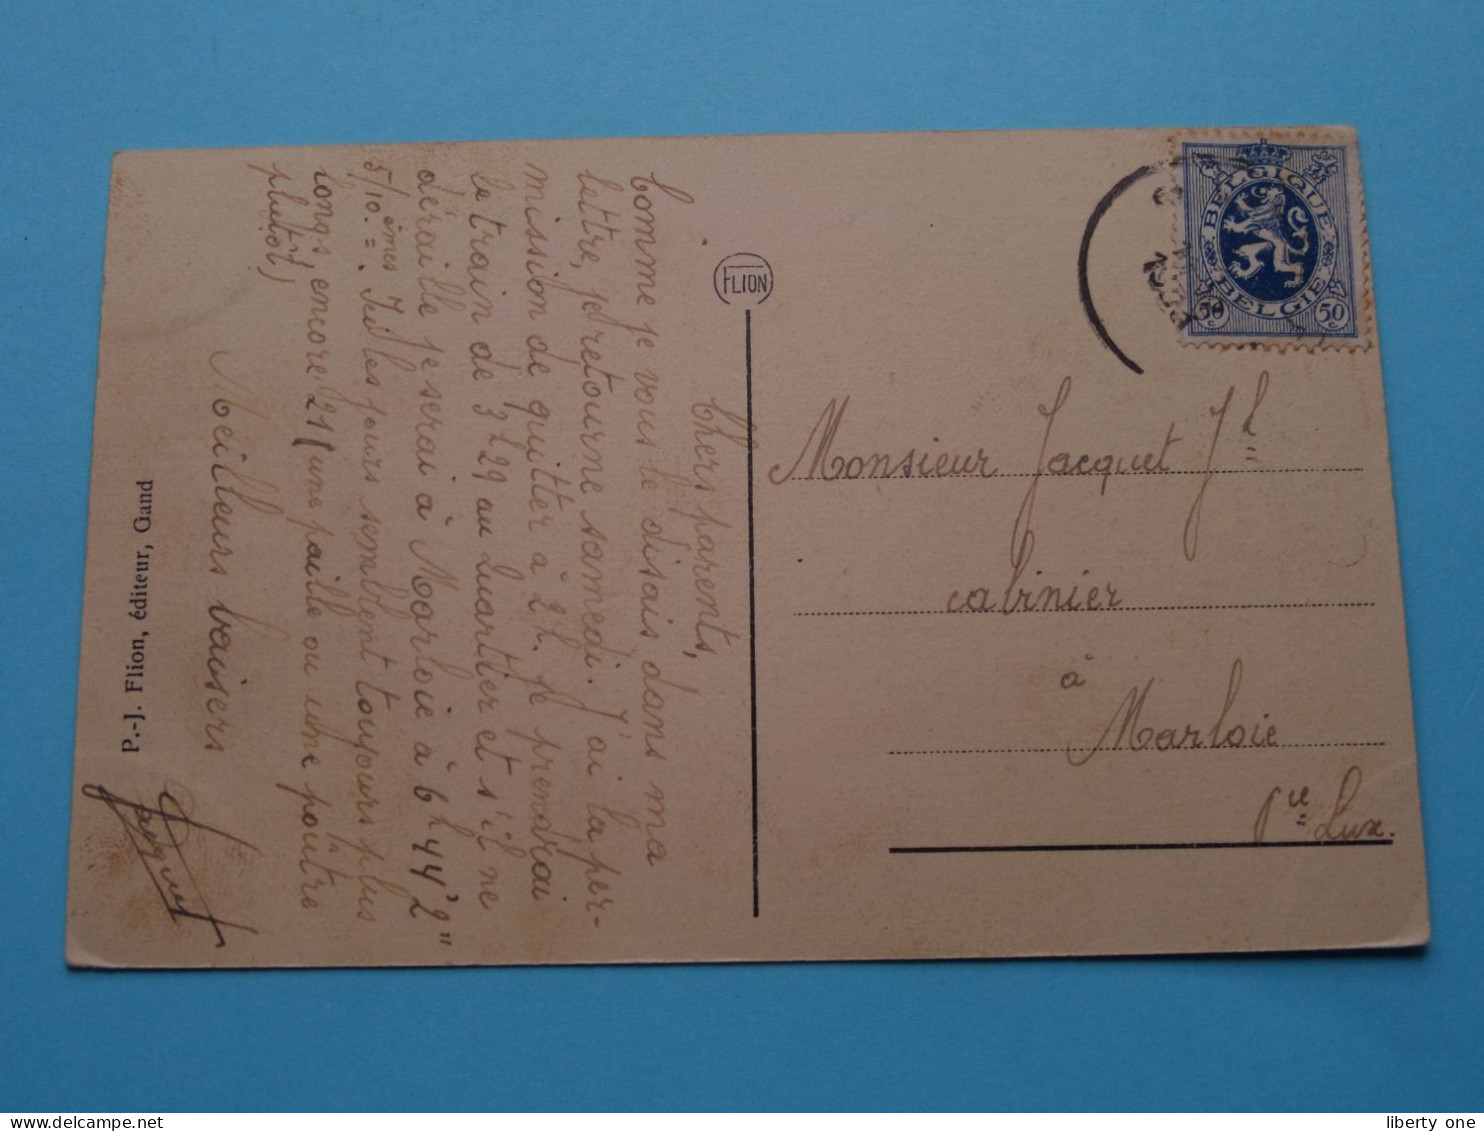 Chers parents,
Comme je vous le disais dans ma
lettre, je retourne samedi. J'ai la per-
mission de quitter à 2h. Je prendrai
le train de 3h29 au Quartier et s'il ne
déraille je serai à Marloie à 6h44'2"
5/10.èmes = Ici les jours semblent toujours plus
longs, encore 21 (une paille ou une poûtre
plutôt)
Meilleurs baisers
Jacquet
P.-J. Flion, éditeur, Gand
FLION
BELGIQUE
BELGIE
50c 50c
Monsieur Jacquet Jh
cabinier
à
Marloie
Pce Lux.
liberty one